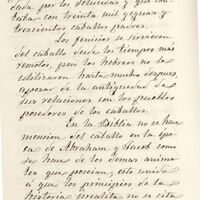 dada por los Selucidas y que con-
taba con treinta mil yeguas y
trescientos caballos padres.
Los fenicios se sirvieron
del caballo desde los tiempos más
remotos, pero los hebreos no le
utilizaron hasta mucho despues,
apesar de la antiguedad de
sus relaciones con los pueblos
poseedores de los caballos.
En la Biblia no se hace
mencion del caballo en la épo-
ca de Abraham y Jacob como
se hace de los demas anima-
les que poseian, esto unido
á que los principios de la
historia israelita no se cita